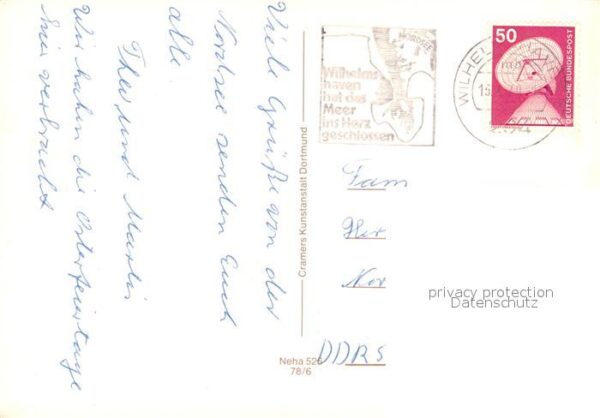 Viele Grüße von der
Nordsee senden Euch
alle.
Theo und Martin
Wir haben die Osterfeiertage
hier verbracht
Cramers Kunstanstalt Dortmund
Neha 526
78/6
NORDSEE
Wilhelms
haven
hat das
Meer
ins Herz
geschlossen
WILHEL
50
DEUTSCHE BUNDESPOST
Fam
Her
Nor
DDRS
privacy protection
Datenschutz